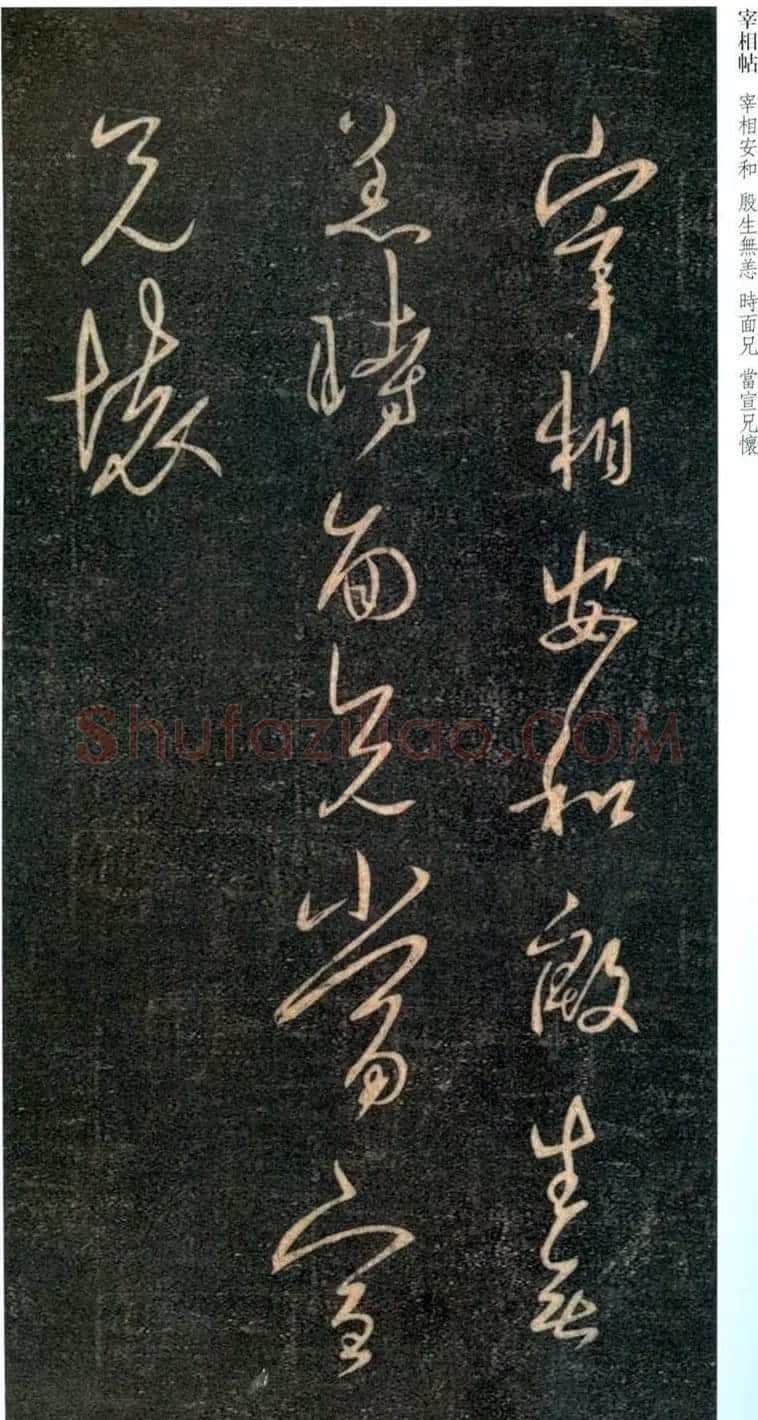 宰相帖 宰相安和 殷生無恙 時面兄 當宣兄懷
宰相安和殷生無
恙時面兄當宣
兄懷
Shufaziliao.COM